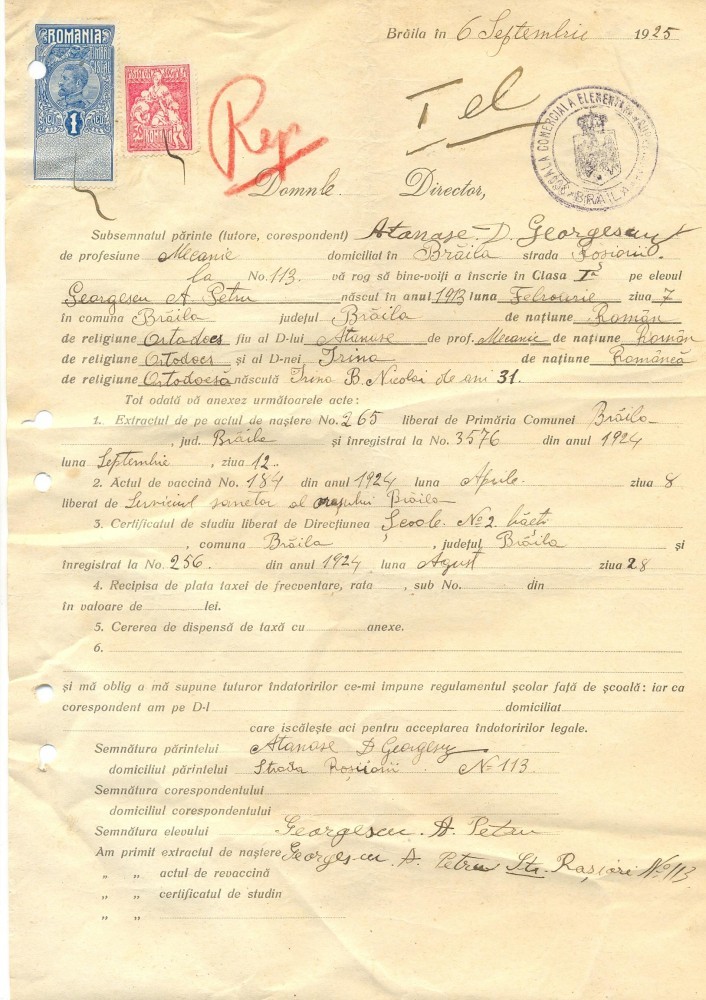 Brăila în 6 Septembrie 1925
ROMANIA
TIMBRU FISCAL
1 LEU
ASISTENTA SOCIALA
50 ROMANIA
Rep
I el
SCOALA COMERCIALA ELEMENTARA
BRAILA
Domnle Director,
Subsemnatul părinte (tutore, corespondent) Atanase D. Georgescu
de profesiune Mecanic domiciliat în Brăila strada Rosiorii
la No. 113. vă rog să bine-voiți a înscrie în Clasa I-a pe elevul
Georgescu A. Petru născut în anul 1913 luna Februarie ziua 7
în comuna Brăila județul Brăila de națiune Român
de religiune Ortodocs fiu al D-lui Atanase de prof. Mecanic de națiune Român
de religiune Ortodocs și al D-nei Irina de națiune Româncă
de religiune Ortodocsă născută Irina B. Nicolai de ani 31.
Tot odată vă anexez următoarele acte:
1. Extractul de pe actul de naștere No. 265 liberat de Primăria Comunei Brăila
, jud. Brăila și înregistrat la No. 3576 din anul 1924
luna Septembrie , ziua 12.
2. Actul de vaccină No. 184 din anul 1924 luna Aprile. ziua 8
liberat de Serviciul sanetar al orașului Brăila
3. Certificatul de studiu liberat de Direcțiunea Școale No 2. băeți
, comuna Brăila , județul Brăila și
înregistrat la No. 256. din anul 1924 luna Agust ziua 28
4. Recipisa de plata taxei de frecventare, rata , sub No. din
în valoare de lei.
5. Cererea de dispensă de taxă cu anexe.
6.
și mă oblig a mă supune tuturor îndatoririlor ce-mi impune regulamentul școlar față de școală: iar ca
corespondent am pe D-l domiciliat
care iscălește aci pentru acceptarea îndotoririlor legale.
Semnătura părintelui Atanase D Georgescu
domiciliul părintelui Strada Roșiorii No 113.
Semnătura corespondentului
domiciliul corespondentului
Semnătura elevului Georgescu A. Petru
Am primit extractul de naștere Georgescu A. Petru Str. Rașiori No 113
„ „ actul de revaccină
„ „ certificatul de studin
„ „